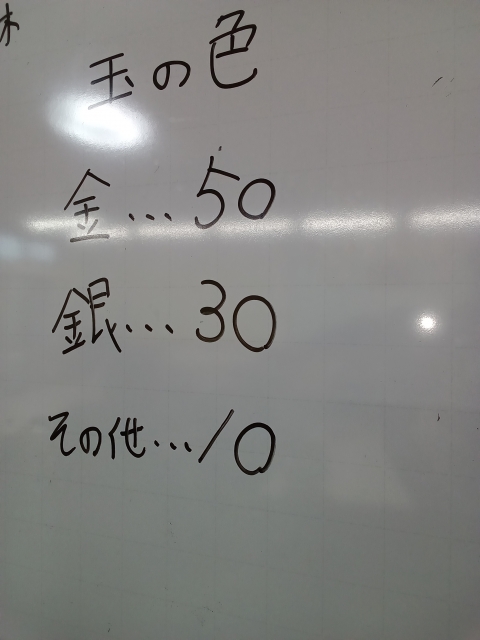 玉の色
金…50
銀…30
その他…10